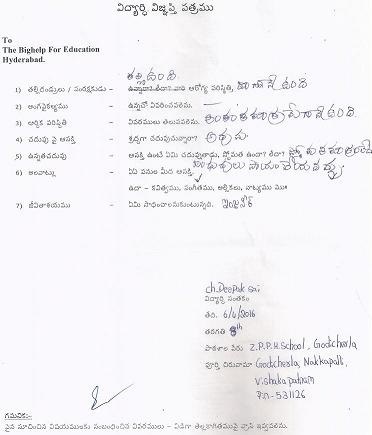 విద్యార్థి విజ్ఞప్తి పత్రము
To
The Bighelp For Education
Hyderabad.
తల్లి ఉంది.
1) తల్లిదండ్రులు / సంరక్షకుడు - ఉన్నారా? లేదా? వారి ఆరోగ్య పరిస్థితి, బాగానే ఉంది
2) అంగవైకల్యము - ఉన్నచో వివరించవలెను.
3) ఆర్థిక పరిస్థితి - వివరములు తెలుపవలెను. అంతంతమాత్రమేగానే ఉంది.
4) చదువు పై ఆసక్తి - శ్రద్ధగా చదువుచున్నారా? అవును
5) ఉన్నతచదువు - ఆసక్తి ఉంటే ఏమి చదువుతారు, స్తోమత ఉందా? లేదా?
6) అలవాట్లు - ఏ ఏ పనుల మీద ఆసక్తి. సాయం చేయడం
ఉదా - కవిత్వము, సంగీతము, అల్లికలు, నాట్యము మొ॥
7) జీవితాశయము - ఏమి సాధించాలనుకుంటున్నది. ఇంజనీర్
ch. Deepak sai
విద్యార్థి సంతకం
తేది. 6/4/2016
తరగతి 8th
పాఠశాల పేరు Z.P.P.H.School, Godicherla
పూర్తి చిరునామా Godicherla, Nakkapalli,
Vishakapatnam
Pin-531126
గమనిక:-
పైన సూచించిన విషయములకు సంబంధించిన వివరములు - విడిగా తెల్లకాగితముపై వ్రాసి ఇవ్వవలెను.